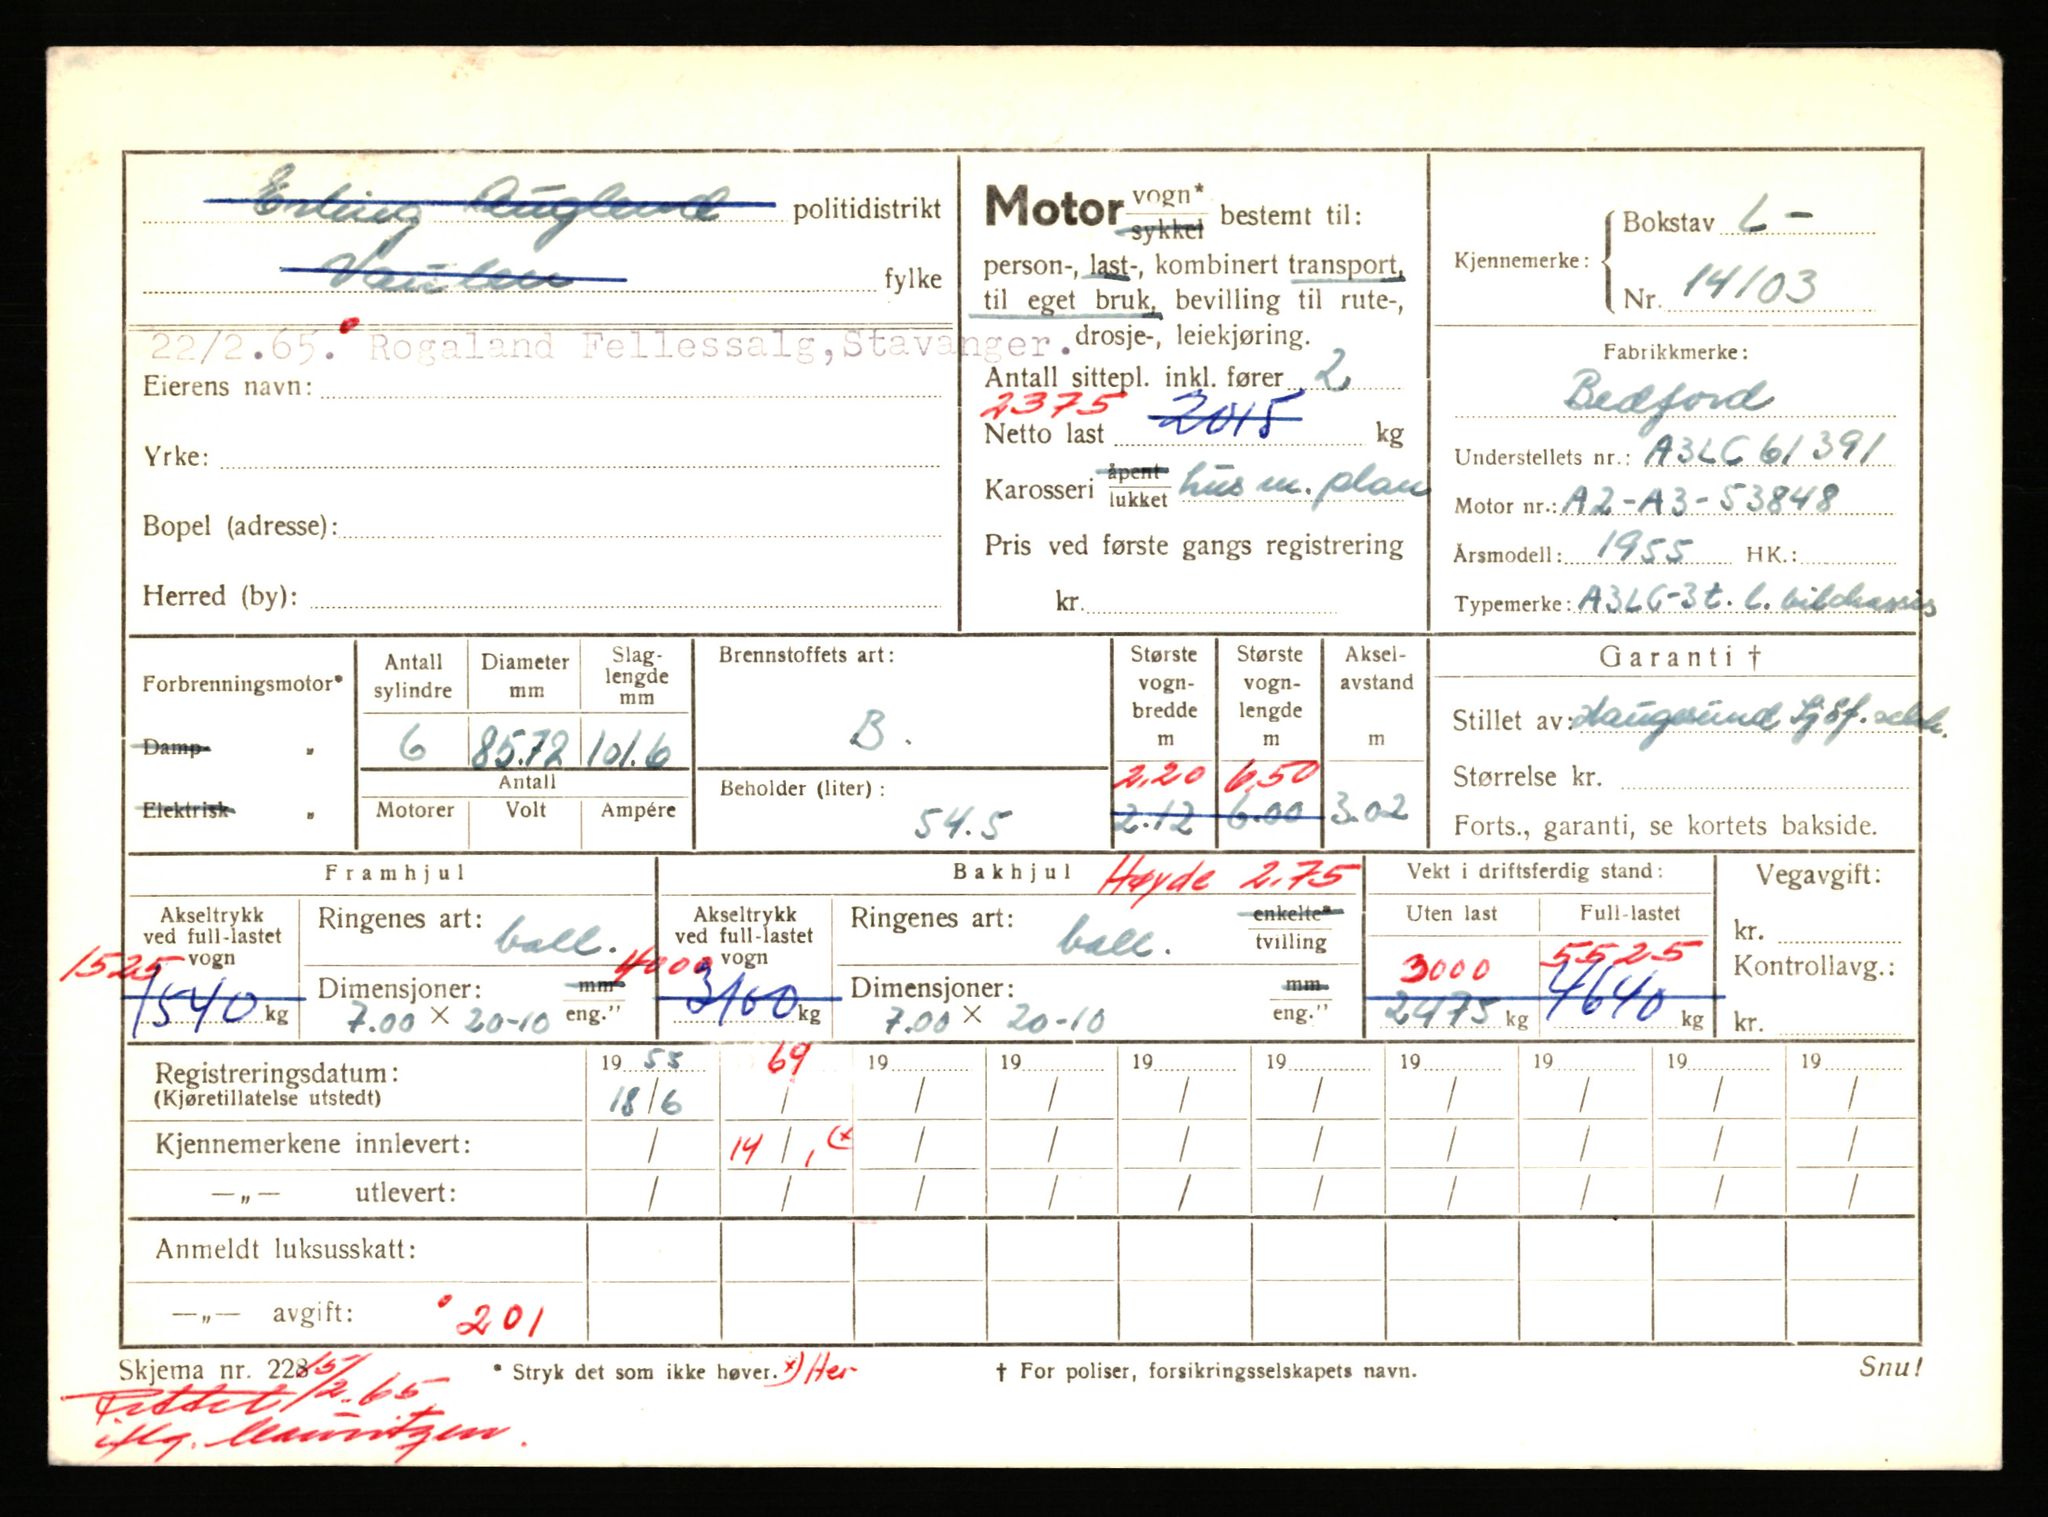 Erling Auglend politidistrikt
Vaulen fylke
22/2.65. Rogaland Fellessalg, Stavanger.
Eierens navn:
Yrke:
Bopel (adresse):
Herred (by):
Motor vogn* sykkel bestemt til:
person-, last-, kombinert transport,
til eget bruk, bevilling til rute-,
drosje-, leiekjøring.
Antall sittepl. inkl. fører 2
2375
Netto last 2015 kg
Karosseri åpent lukket hus m. plan
Pris ved første gangs registrering
kr.
Kjennemerke: Bokstav L-
Nr. 14103
Fabrikkmerke:
Bedford
Understellets nr.: A3LC 61391
Motor nr.: A2-A3-53848
Årsmodell: 1955 HK.:
Typemerke: A3LC-3t. l. bilchassis
Forbrenningsmotor*
Damp- "
Elektrisk "
Antall sylindre
6
Diameter mm
85.72
Slag-lengde mm
101.6
Antall
Motorer Volt Ampére
Brennstoffets art:
B.
Beholder (liter):
54.5
Største vogn-bredde m
2.20
2.12
Største vogn-lengde m
6.50
6.00
Aksel-avstand m
3.02
Garanti †
Stillet av: Haugesund Sjøf.
Størrelse kr.
Forts., garanti, se kortets bakside.
Framhjul
Akseltrykk ved full-lastet vogn
1525
1540 kg
Ringenes art: ball.
Dimensjoner: mm
7.00 × 20-10 eng."
Bakhjul Høyde 2.75
Akseltrykk ved full-lastet vogn
4000
3100 kg
Ringenes art: enkelte* tvilling
ball.
Dimensjoner: mm
7.00 × 20-10 eng."
Vekt i driftsferdig stand:
Uten last Full-lastet
3000 5525
2475 kg 4640 kg
Vegavgift:
kr.
Kontrollavg.:
kr.
Registreringsdatum: 19 55 69 19 19 19 19 19 19 19 19
(Kjøretillatelse utstedt) 18/6 / / / / / / / / /
Kjennemerkene innlevert: / 14/1 (x / / / / / / / /
—„— utlevert: / / / / / / / / / /
Anmeldt luksusskatt:
—„— avgift: 201
Skjema nr. 228 * Stryk det som ikke høver. x) Her † For poliser, forsikringsselskapets navn. Snu!
Rettet 15/2.65,
iflg. Mauritzen.